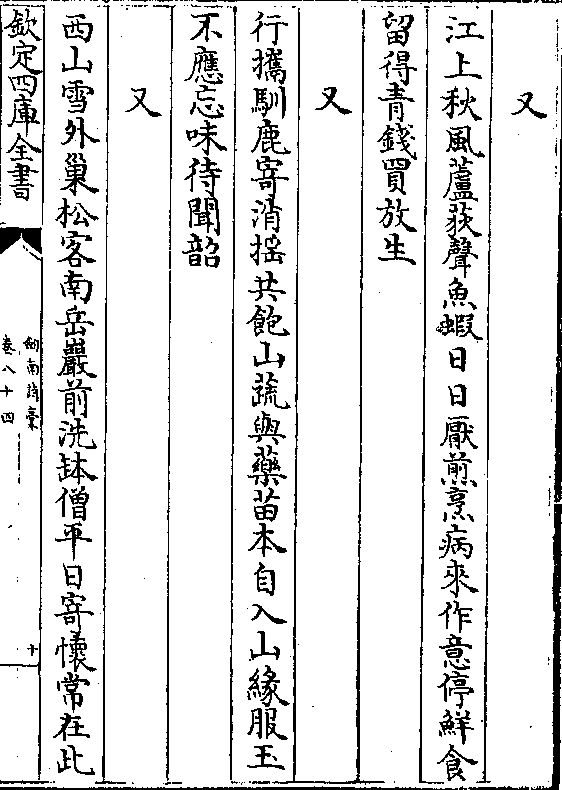 又
江上秋風蘆荻聲魚蝦日日厭煎烹病來作意停鮮食
留得青錢買放生
又
行攜馴鹿寄消揺共飽山蔬與藥苗本自入山緣服玉
不應忘味待聞韶
又
西山雪外巢松客南岳巖前洗鉢僧平日寄懷常在此
欽定四庫全書
劔南詩稾
卷八十四
十